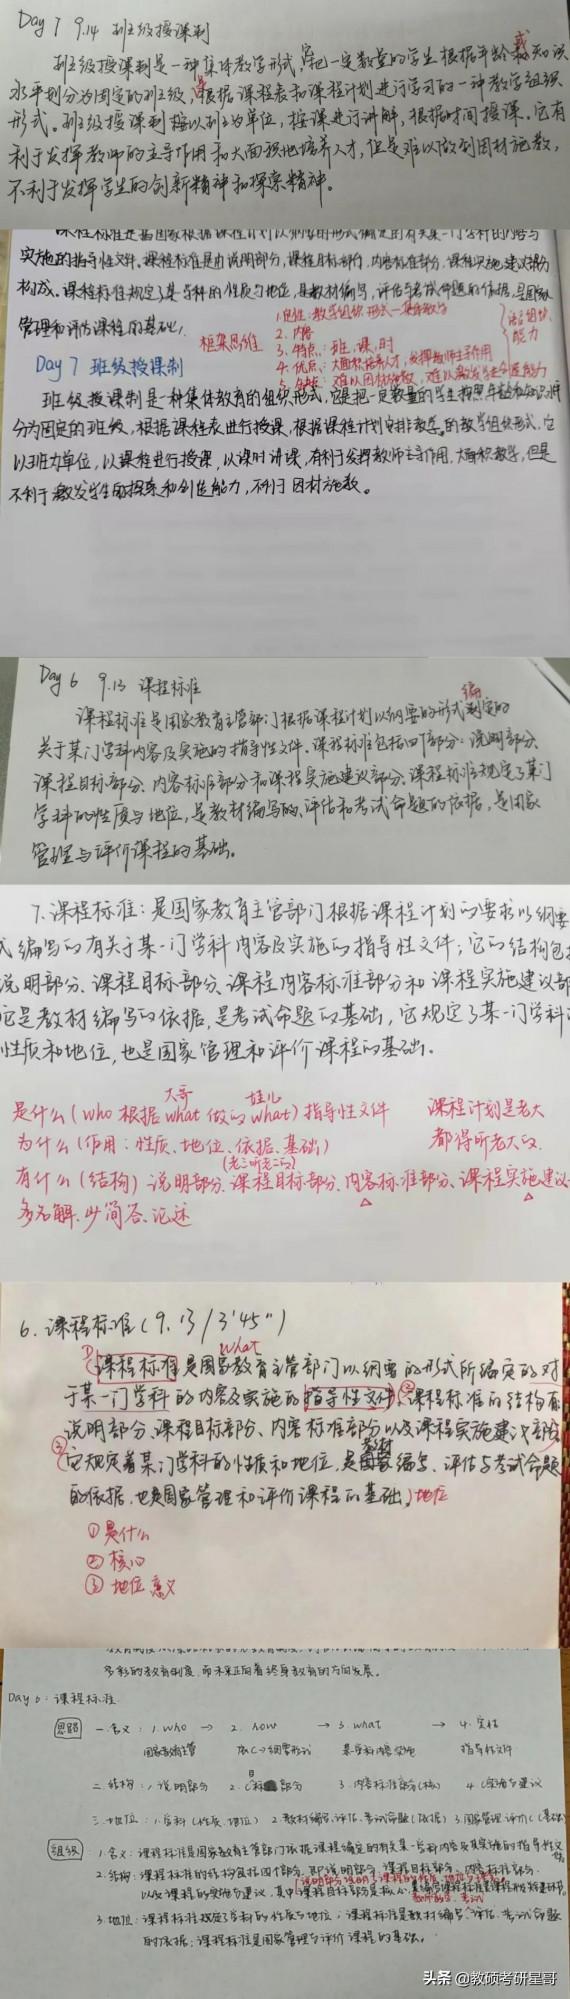 Day 7 9.14 班级授课制
班级授课制是一种集体教学形式,它把一定数量的学生根据年龄或知识
水平划分为固定的班级,是根据课程表和课程计划进行学习的一种教学组织
形式。班级授课制按以班为单位,按课进行讲解,根据时间授课。它有
利于发挥教师的主导作用和大面积地培养人才,但是难以做到因材施教,
不利于发挥学生的创新精神和探索精神。
课程标准是国家根据课程计划以纲要的形式编定的有关某一门学科的内容与
实施的指导性文件。课程标准是由说明部分,课程目标部分,内容标准部分,课程实施建议部分
构成。课程标准规定了某学科的性质与地位,是教材编写,评估与考试命题的依据,是国家
管理和评估课程的基础。
框架思维
1. 定性:教学组织形式—集体教学
2. 内容
3. 特点:班,课,时
4. 优点:大面积培养人才,发挥教师主导作用
5. 缺点:难以因材施教,难以激发学生创造能力
语言组织
能力
Day 7 班级授课制
班级授课制是一种集体教育的组织形式,它是把一定数量的学生按照年龄和知识水平
分为固定的班级,根据课程表进行授课,根据课程计划安排教学的教学组织形式。它
以班为单位,以课程进行授课,以课时讲课,有利于发挥教师主导作用,大面积教学,但是
不利于激发学生的探索和创造能力,不利于因材施教。
Day 6 9.13 课程标准
编
课程标准是国家教育主管部门根据课程计划以纲要的形式制定的
关于某门学科内容及实施的指导性文件。课程标准包括四个部分:说明部分、
课程目标部分、内容标准部分和课程实施建议部分。课程标准规定了某门
学科的性质与地位,是教材编写的、评估和考试命题的依据,是国家
管理与评价课程的基础。
7.课程标准:是国家教育主管部门根据课程计划的要求以纲要
式编写的有关于某一门学科内容及实施的指导性文件;它的结构包括
说明部分、课程目标部分、课程内容标准部分和课程实施建议部
它是教材编写的依据,是考试命题的基础,它规定了某一门学科的
性质和地位,也是国家管理和评价课程的基础。
大哥 娃儿
是什么(who根据what做的what)指导性文件 课程计划是老大
为什么(作用:性质、地位、依据、基础) 都得听老大的.
(老三听老二的)
有什么(结构)说明部分、课程目标部分、内容标准部分、课程实施建议
多名解、少简答、论述
6. 课程标准(9.13/3'45")
what
①课程标准是国家教育主管部门以纲要的形式所编定的对
于某一门学科的内容及实施的指导性文件,②课程标准的结构有
说明部分、课程目标部分、内容标准部分以及课程实施建议部分
教材
③它规定着某门学科的性质和地位,是国家编写、评估与考试命题
的依据,也是国家管理和评价课程的基础。地位
①是什么
②核心
③地位意义
多彩的教育制度,而未来正向着终身教育的方向发展。
Day 6:课程标准
思路 一.含义:1.who → 2.how → 3.what → 4.定性
国家教育主管 依C→纲要形式 某学科内容实施 指导性文件
二.结构:1.说明部分 2.C目标部分 3.内容标准部分(核) 4.C实施与建议
三.地位:1.学科(性质、地位) 2.教材编写、评估、考试命题(依据) 3.国家管理评价C(基础)
组织 1.含义:课程标准是国家教育主管部门依据课程编定的有关某一学科内容及其实施的指导性文件
2.结构:课程标准的结构包括四个部分,即说明部分、课程目标部分、内容标准部分、
以及课程的实施与建议,其中课程目标部分是核心,
3.地位:课程标准规定了学科的性质与地位;课程标准是教材编写、评估、考试命题
的依据;课程标准是国家管理与评价课程的基础。
头条 @教硕考研星哥